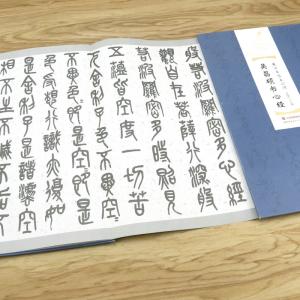 吴昌硕书心经
般若波羅密多心經
觀自在菩薩行深般
若波羅密多時照見
五蘊皆空度一切苦
厄舍利子色不異空
不異色即是空即是
色受想行識亦復如
是舍利子是諸法空
相不生不滅不垢不